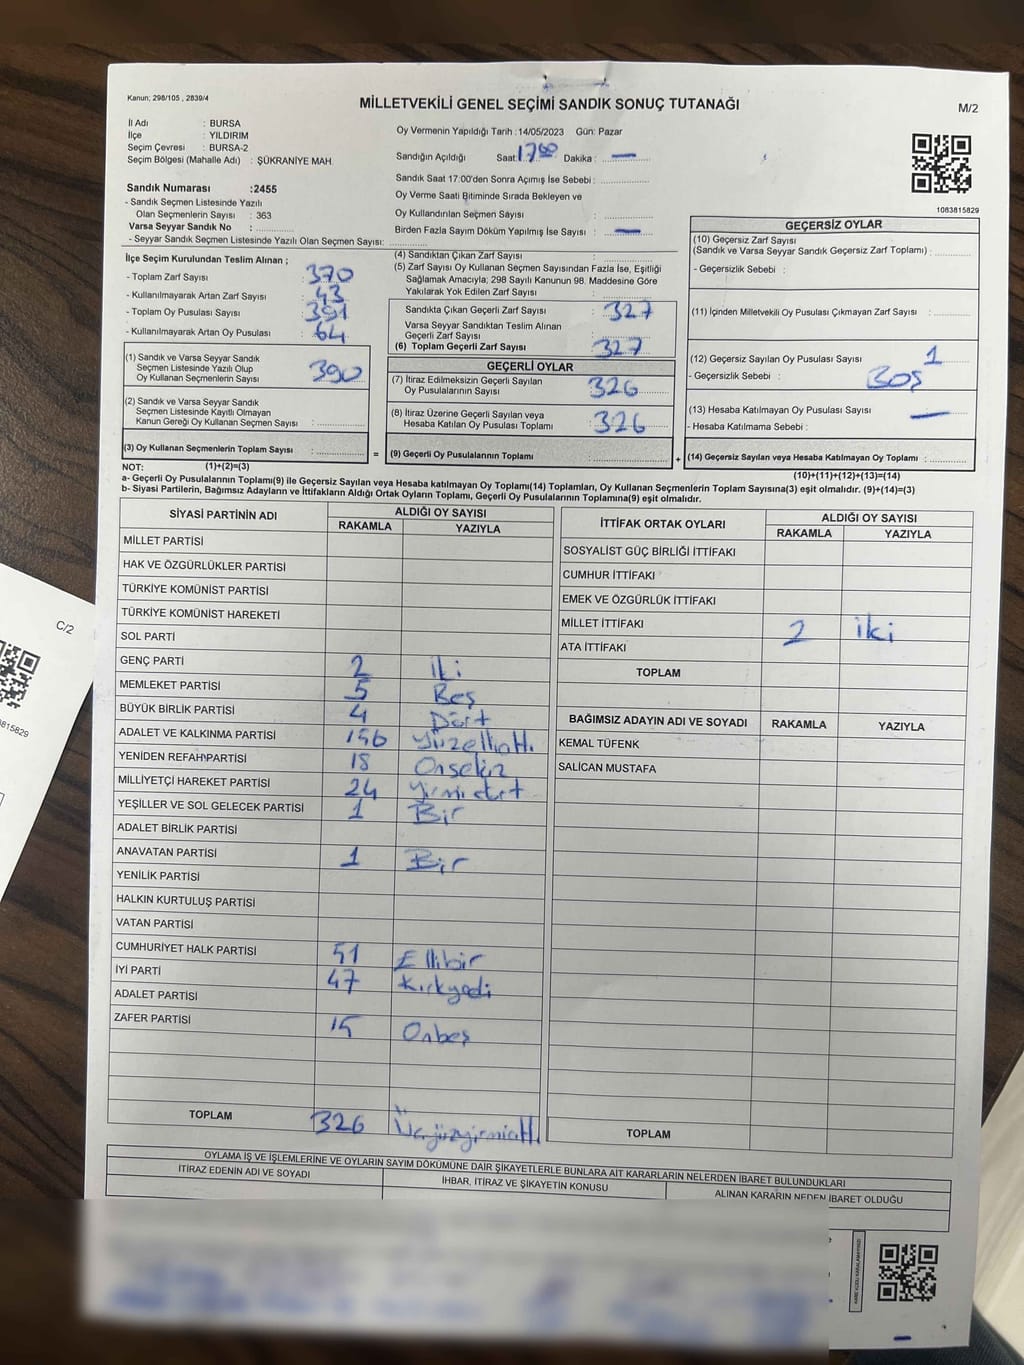 Kanun; 298/105 , 2839/4
MİLLETVEKİLİ GENEL SEÇİMİ SANDIK SONUÇ TUTANAĞI
M/2
İl Adı : BURSA
İlçe : YILDIRIM
Seçim Çevresi : BURSA-2
Seçim Bölgesi (Mahalle Adı) : ŞÜKRANİYE MAH.
Oy Vermenin Yapıldığı Tarih : 14/05/2023 Gün: Pazar
Sandığın Açıldığı Saat: 17 00 Dakika : —
Sandık Saat 17:00'den Sonra Açımış İse Sebebi :
Oy Verme Saati Bitiminde Sırada Bekleyen ve
Oy Kullandırılan Seçmen Sayısı :
Birden Fazla Sayım Döküm Yapılmış İse Sayısı : —
1083815829
Sandık Numarası :2455
- Sandık Seçmen Listesinde Yazılı
Olan Seçmenlerin Sayısı : 363
Varsa Seyyar Sandık No :
- Seyyar Sandık Seçmen Listesinde Yazılı Olan Seçmen Sayısı:
İlçe Seçim Kurulundan Teslim Alınan ;
- Toplam Zarf Sayısı : 370
- Kullanılmayarak Artan Zarf Sayısı : 43
- Toplam Oy Pusulası Sayısı : 391
- Kullanılmayarak Artan Oy Pusulası : 64
(1) Sandık ve Varsa Seyyar Sandık
Seçmen Listesinde Yazılı Olup
Oy Kullanan Seçmenlerin Sayısı : 390
(2) Sandık ve Varsa Seyyar Sandık
Seçmen Listesinde Kayıtlı Olmayan
Kanun Gereği Oy Kullanan Seçmen Sayısı :
(3) Oy Kullanan Seçmenlerin Toplam Sayısı :
(4) Sandıktan Çıkan Zarf Sayısı :
(5) Zarf Sayısı Oy Kullanan Seçmen Sayısından Fazla İse, Eşitliği
Sağlamak Amacıyla; 298 Sayılı Kanunun 98. Maddesine Göre
Yakılarak Yok Edilen Zarf Sayısı :
Sandıkta Çıkan Geçerli Zarf Sayısı : 327
Varsa Seyyar Sandıktan Teslim Alınan
Geçerli Zarf Sayısı :
(6) Toplam Geçerli Zarf Sayısı : 327
GEÇERLİ OYLAR
(7) İtiraz Edilmeksizin Geçerli Sayılan
Oy Pusulalarının Sayısı : 326
(8) İtiraz Üzerine Geçerli Sayılan veya
Hesaba Katılan Oy Pusulası Toplamı : 326
= (9) Geçerli Oy Pusulalarının Toplamı :
GEÇERSİZ OYLAR
(10) Geçersiz Zarf Sayısı
(Sandık ve Varsa Seyyar Sandık Geçersiz Zarf Toplamı) :
- Geçersizlik Sebebi :
(11) İçinden Milletvekili Oy Pusulası Çıkmayan Zarf Sayısı :
(12) Geçersiz Sayılan Oy Pusulası Sayısı : 1
- Geçersizlik Sebebi : BOŞ
(13) Hesaba Katılmayan Oy Pusulası Sayısı : —
- Hesaba Katılmama Sebebi :
+ (14) Geçersiz Sayılan veya Hesaba Katılmayan Oy Toplamı :
NOT: (1)+(2)=(3)
(10)+(11)+(12)+(13)=(14)
a- Geçerli Oy Pusulalarının Toplamı(9) ile Geçersiz Sayılan veya Hesaba katılmayan Oy Toplamı(14) Toplamları, Oy Kullanan Seçmenlerin Toplam Sayısına(3) eşit olmalıdır. (9)+(14)=(3)
b- Siyasi Partilerin, Bağımsız Adayların ve İttifakların Aldığı Ortak Oyların Toplamı, Geçerli Oy Pusulalarının Toplamına(9) eşit olmalıdır.
SİYASİ PARTİNİN ADI ALDIĞI OY SAYISI
RAKAMLA YAZIYLA
MİLLET PARTİSİ
HAK VE ÖZGÜRLÜKLER PARTİSİ
TÜRKİYE KOMÜNİST PARTİSİ
TÜRKİYE KOMÜNİST HAREKETİ
SOL PARTİ
GENÇ PARTİ 2 İki
MEMLEKET PARTİSİ 5 Beş
BÜYÜK BİRLİK PARTİSİ 4 Dört
ADALET VE KALKINMA PARTİSİ 156 Yüzellialtı
YENİDEN REFAH PARTİSİ 18 Onsekiz
MİLLİYETÇİ HAREKET PARTİSİ 24 Yirmidört
YEŞİLLER VE SOL GELECEK PARTİSİ 1 Bir
ADALET BİRLİK PARTİSİ
ANAVATAN PARTİSİ 1 Bir
YENİLİK PARTİSİ
HALKIN KURTULUŞ PARTİSİ
VATAN PARTİSİ
CUMHURİYET HALK PARTİSİ 51 Ellibir
İYİ PARTİ 47 Kırkyedi
ADALET PARTİSİ
ZAFER PARTİSİ 15 Onbeş
TOPLAM 326 Üçyüzyirmialtı
İTTİFAK ORTAK OYLARI ALDIĞI OY SAYISI
RAKAMLA YAZIYLA
SOSYALİST GÜÇ BİRLİĞİ İTTİFAKI
CUMHUR İTTİFAKI
EMEK VE ÖZGÜRLÜK İTTİFAKI
MİLLET İTTİFAKI 2 iki
ATA İTTİFAKI
TOPLAM
BAĞIMSIZ ADAYIN ADI VE SOYADI RAKAMLA YAZIYLA
KEMAL TÜFENK
SALİCAN MUSTAFA
TOPLAM
OYLAMA İŞ VE İŞLEMLERİNE VE OYLARIN SAYIM DÖKÜMÜNE DAİR ŞİKAYETLERLE BUNLARA AİT KARARLARIN NELERDEN İBARET BULUNDUKLARI
İTİRAZ EDENİN ADI VE SOYADI İHBAR, İTİRAZ VE ŞİKAYETİN KONUSU ALINAN KARARIN NEDEN İBARET OLDUĞU
C/2
815829